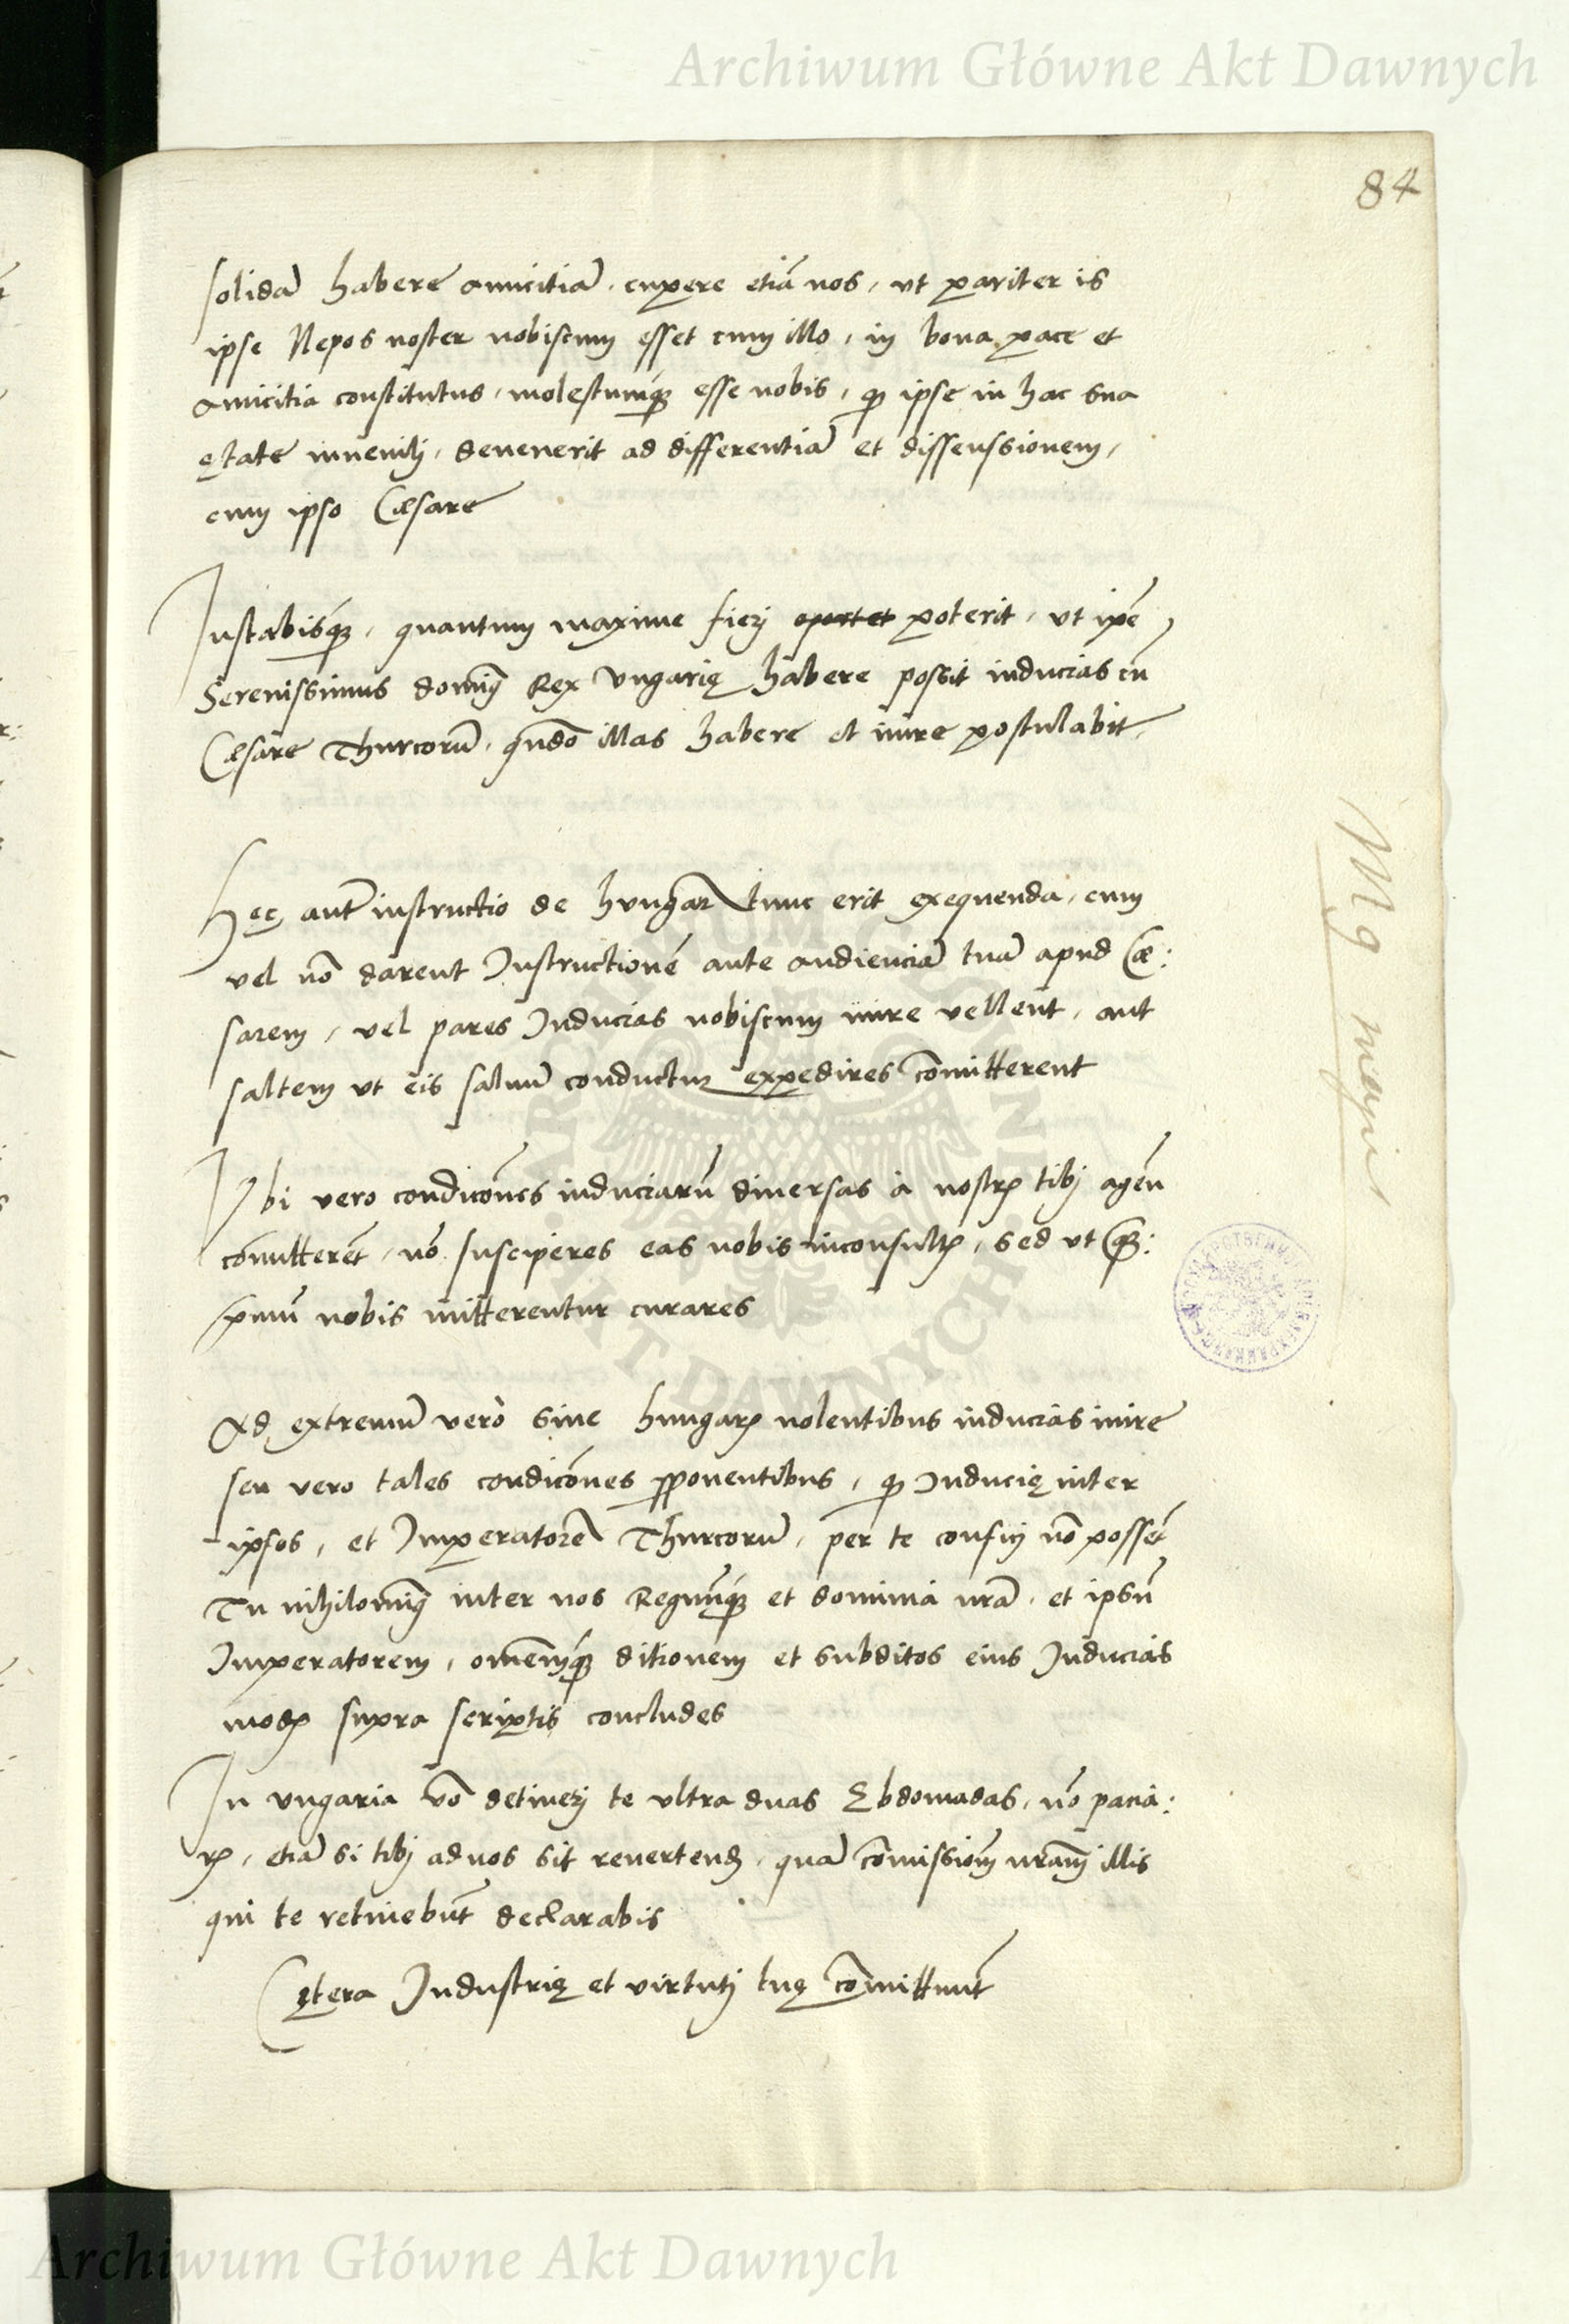 Archiwum Główne Akt Dawnych
84
solidā habere amicitiā. cupere etiā nos, ut pariter is
ipse Nepos noster nobiscum esset cum illo, in bona pace et
amicitia constitutus, molestumq₃ esse nobis, ꝙ ipse in hac sua
ętate iuuenili, deuenerit ad differentiā et dissenssionem,
cum ipso Cæsare
Instabisq₃, quantum maxime fieri oportet poterit, ut ip̄e
Serenissimus dominꝰ Rex Vngarię habere possit inducias cū
Cæsare Thurcorū, qn̄do illas habere et inire postulabit
Hec aut̄ instructio de hungar̄ tunc erit exequenda, cum
vel nō darent Instructionē ante audienciā tuā apud Cæ:
sarem, vel pares Inducias nobiscum inire vellent, aut
saltem ut eis saluū conductū expedires cōmitterent
Vbi vero condicōnes induciarū diuersas à nostrꝭ tibi agēn
cōmitterēt, nō susciperes eas nobis inconsultꝭ, sed ut q̄:
primū nobis mitterentur curares
Ad extremū verò siue hungarꝭ nolentibus inducias inire
seu vero tales condicōnes ꝓponentibus, ꝙ Inducię inter
ipsos, et Imperatorē Thurcorū, per te confici nō possēt
Tu nihilominꝰ inter nos Regnūq₃ et dominia nr̄a, et ipsū
Imperatorem, omēmq₃ ditionem et subditos eius Inducias
modꝭ supra scriptis concludes
In Vngaria vō detineri te ultra duas Ebdomadas, nō pacia:
rꝭ, etiā si tibi ad nos sit reuertendū, quā cōmissiōm nr̄am illis
qui te retinebūt declarabis
Cętera Industrię et virtuti tuę cōmittunt̄
ARCHIWUM GŁÓWNE AKT DAWNYCH
Archiwum Główne Akt Dawnych